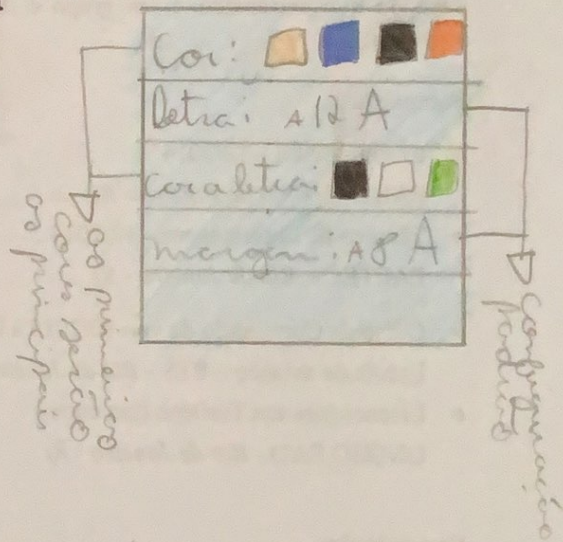 Cor:
Letra: A 12 A
cor a letra:
margem: A 8 A
as primeiras
cores serão
as principais
configuração
padrão